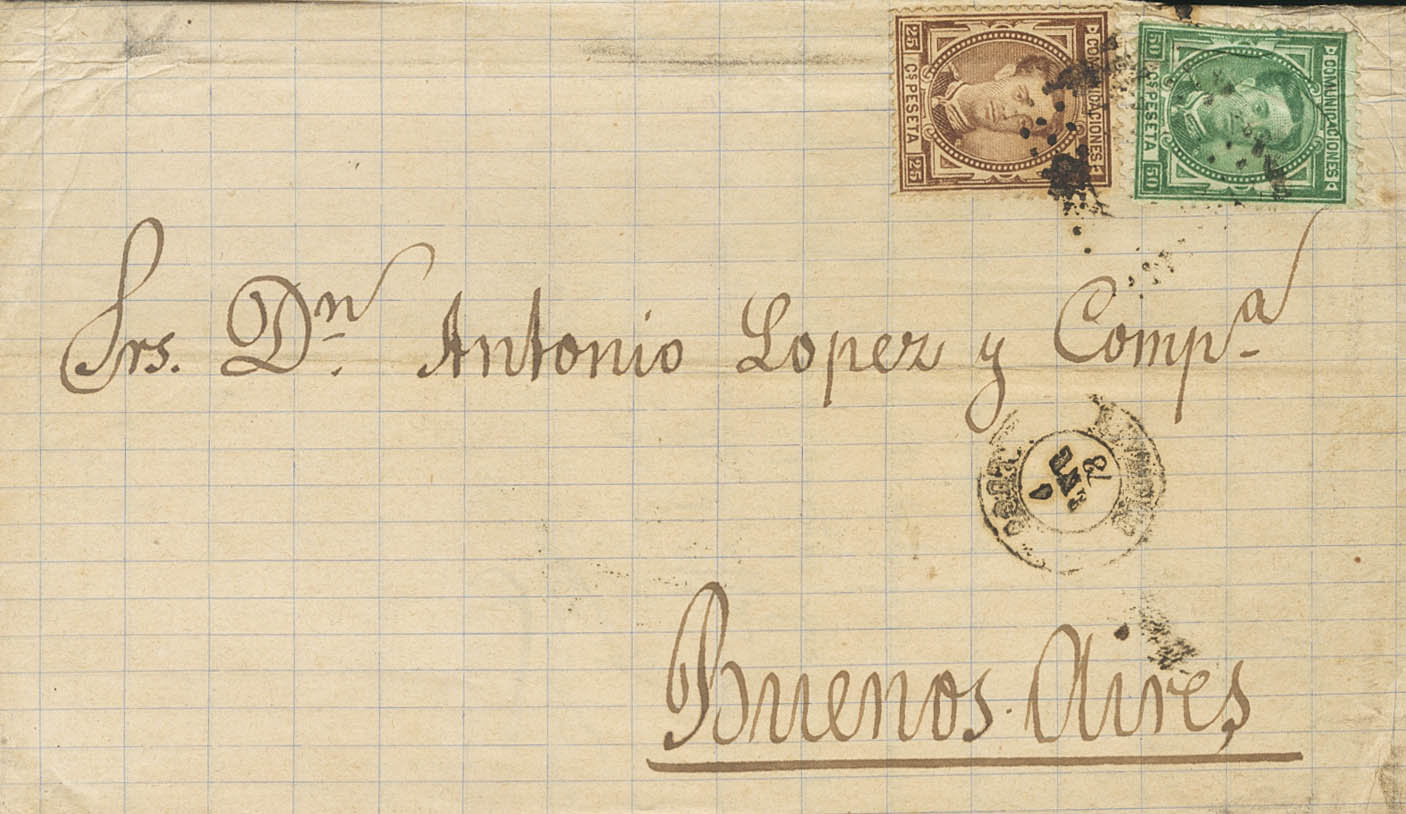 COMUNICACIONES
25 Cs PESETA 25
COMUNICACIONES
50 Cs PESETA 50
Srs. Dn. Antonio Lopez y Compa
ENE
78
Buenos Aires